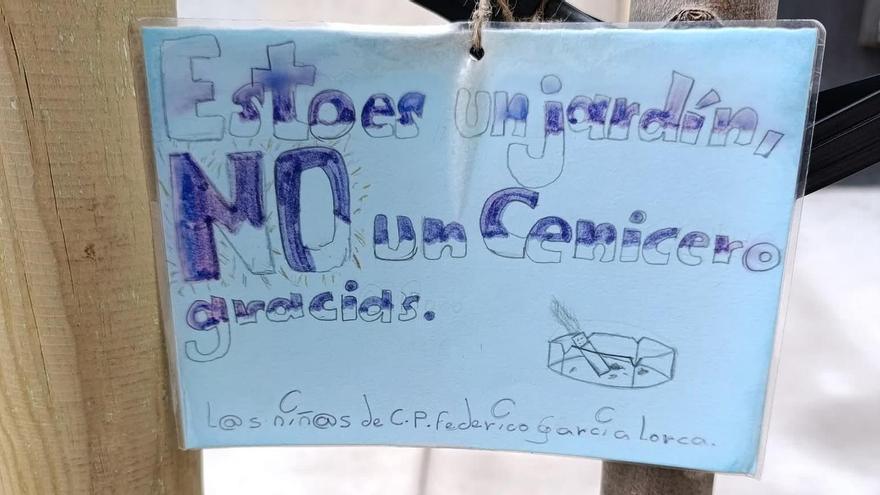 Esto es un jardín,
NO un Cenicero
gracias.
L@s niñ@s de C.P. Federico García Lorca.